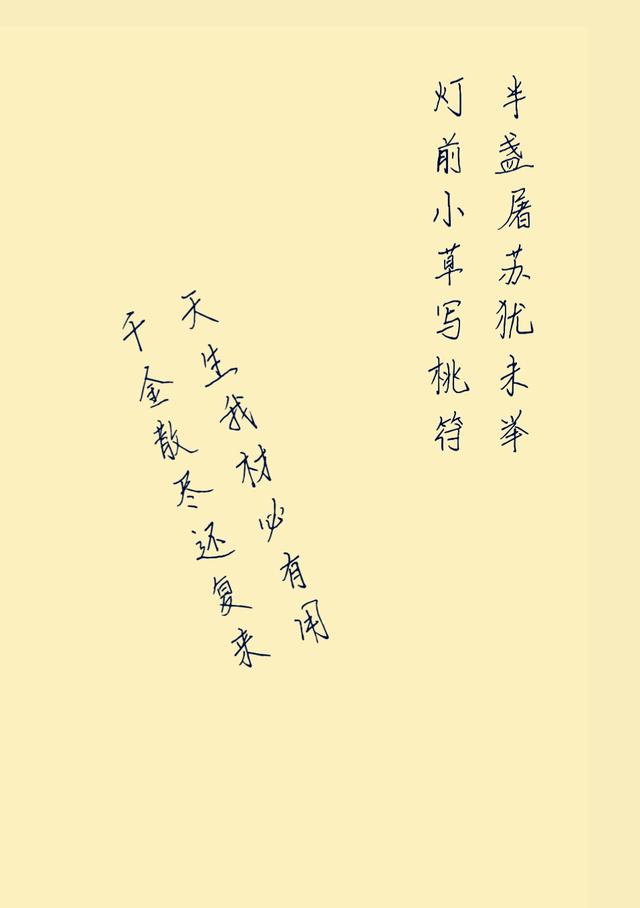 半盏屠苏犹未举
灯前小草写桃符
天生我材必有用
千金散尽还复来